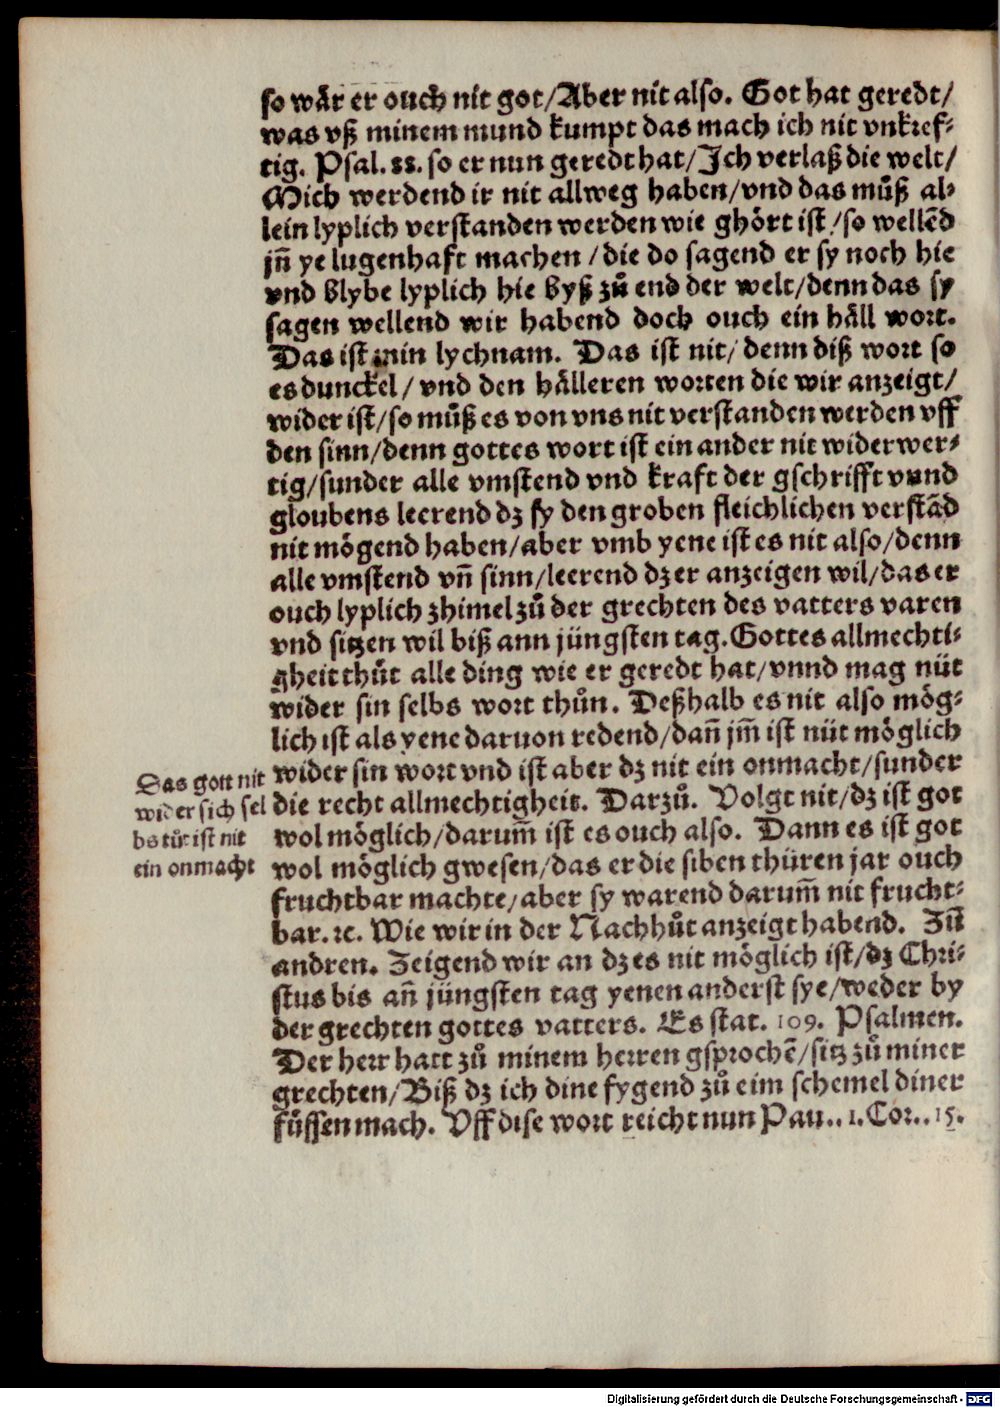 so wår er ouch nit got/Aber nit also. Got hat geredt/
was vß minem mund kumpt das mach ich nit vnkref⸗
tig. Psal. 88. so er nun geredt hat/Ich verlaß die welt/
Mich werdend ir nit allweg haben/vnd das můß al⸗
lein lyplich verstanden werden wie ghört ist/so wellēd
jn̄ ye lugenhaft machen/die do sagend er sy noch hie
vnd blybe lyplich hie byß zů end der welt/denn das sy
sagen wellend wir habend doch ouch ein häll wort.
Das ist min lychnam. Das ist nit/denn diß wort so
es dunckel/vnd den hälleren worten die wir anzeigt/
wider ist/so můß es von vns nit verstanden werden vff
den sinn/denn gottes wort ist ein ander nit widerwer⸗
tig/sunder alle vmstend vnd kraft der gschrifft vnnd
gloubens leerend dz sy den groben fleichlichen verstād
nit mögend haben/aber vmb yene ist es nit also/denn
alle vmstend vn̄ sinn/leerend dz er anzeigen wil/das er
ouch lyplich zhimel zů der grechten des vatters varen
vnd sitzen wil biß ann jüngsten tag. Gottes allmechti⸗
gheit thůt alle ding wie er geredt hat/vnnd mag nüt
wider sin selbs wort thůn. Deßhalb es nit also mög⸗
lich ist als yene daruon redend/dan̄ jm̄ ist nüt möglich
wider sin wort vnd ist aber dz nit ein onmacht/sunder
die recht allmechtigheit. Darzů. Volgt nit/dz ist got
wol möglich/darum̄ ist es ouch also. Dann es ist got
wol möglich gwesen/das er die siben thüren jar ouch
fruchtbar machte/aber sy warend darum̄ nit frucht⸗
bar. ꝛc. Wie wir in der Nachhůt anzeigt habend. Zů
andren. Zeigend wir an dz es nit möglich ist/dz Chri⸗
stus bis an̄ jüngsten tag yenen anderst sye/weder by
der grechten gottes vatters. Es stat. 109. Psalmen.
Der herr hatt zů minem herren gsprochē/sitz zů miner
grechten/Biß dz ich dine fygend zů eim schemel diner
füssen mach. Vff dise wort reicht nun Pau.. 1. Cor.. 15.
Das gott nit
wider sich sel
bs tůt ist nit
ein onmacht
Digitalisierung gefördert durch die Deutsche Forschungsgemeinschaft - DFG